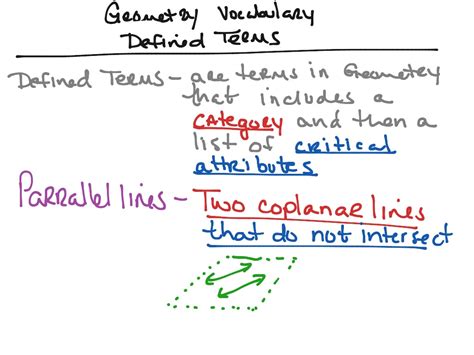 Geometry Vocabulary
Defined Terms
Defined Terms - are terms in Geometry
that includes a
category and then a
list of critical
attributes
Parrallel lines - Two coplanar lines
that do not intersect